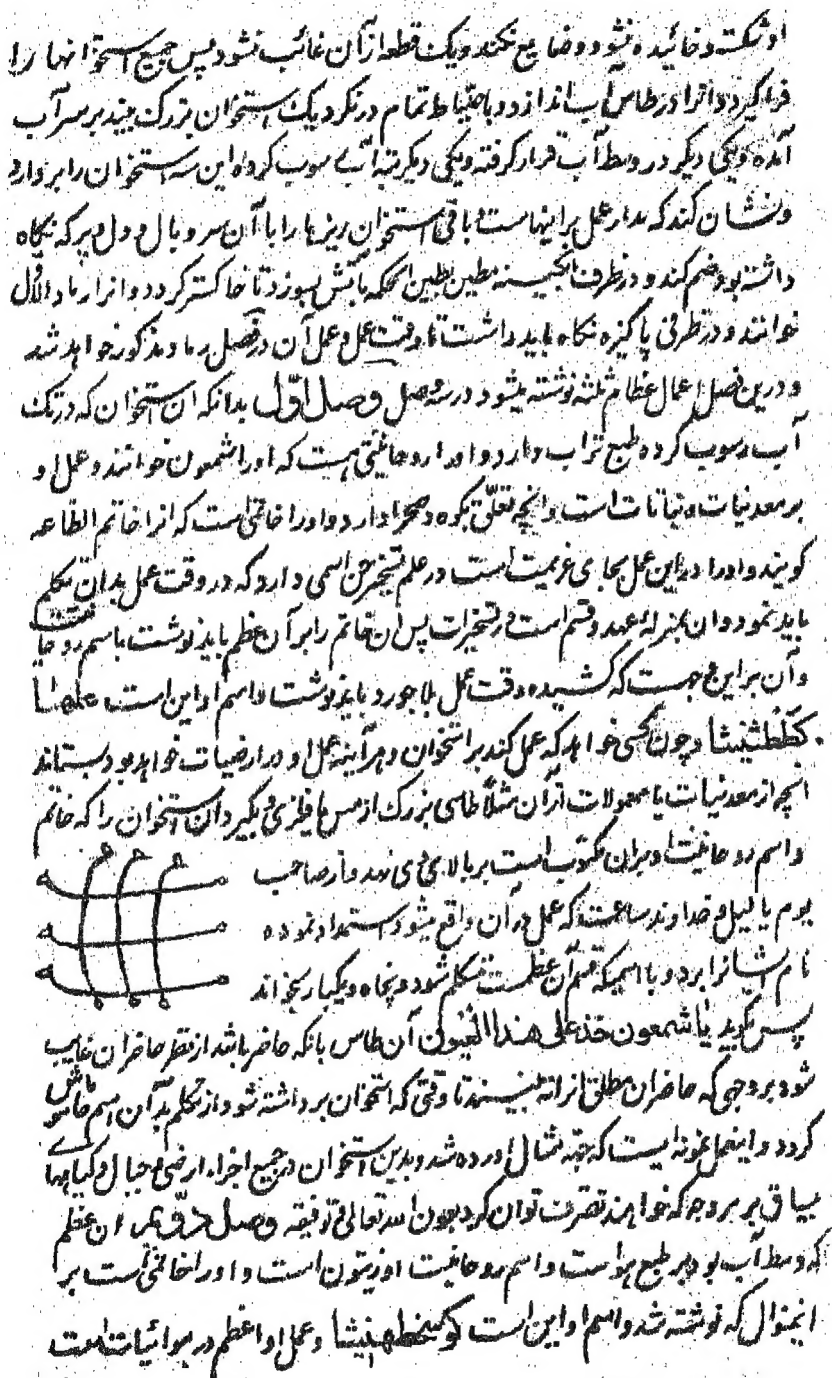 او شکسته و خائیده نشود و ضایع نکند و یک قطعه از آن غائب نشود پس جمیع استخوانها را
فراگیرد و انرا در طاس آب اندازد و باحتیاط تمام درنگرد یک استخوان بزرک بیند بر سر آب
آمده و یکی دیکر در وسط آب قرار کرفته و یکی دیکر بته آب رسوب کرده این سه استخوان را بردارد
و نشان کند که مدار عمل بر اینهاست و باقی استخوان ریزها را با آن سر و بال و دل و پر که نگاه
داشته بود ضم کند و در ظرف آبکینه مطین بطین الحکمه بآتش بسوزد تا خاکستر کردد و انرا رماد الاول
خوانند و در ظرفی پاکیزه نکاه باید داشت تا وقت عمل و عمل آن در فصل رماد مذکور خواهد شد
و درین فصل اعمال عظام ثلثه نوشته میشود در سه وصل وصل اوّل بدانکه ان استخوان که در تک
آب رسوب کرده طبع تراب دارد و او را روحانیتی هست که او را شمعون خوانند و عمل او
بر معدنیات و نباتات است و انچه تعلّق بکوه و صحرا دارد و او را خاتمی است که انرا خاتم الطاعه
کویند و او را در این عمل بجای عزیمت است در علم تسخیر جن اسمی دارد که در وقت عمل بدان تکلم
باید نمود و ان بمنزلهٔ عهد و قسم است در تسخیرات پس ان خاتم را بر آن عظم باید نوشت باسم روحانیت
و آن براین وجهست که کشیده وقت عمل بلاجورد باید نوشت و اسم او این است
و چون کسی خواهد که عمل کند بر استخوان و هر آینه عمل او در ارضیات خواهد بود بستاند
انچه از معدنیات یا معمولات از ان مثلاً طاسی بزرک از مس یا فلزی و بگیرد ان استخوان را که خاتم
و اسم روحانیت او بران مکتوب است بر بالای وی نهد و از صاحب
یوم یا لیل و خداوند ساعت که عمل در آن واقع میشود استمداد نموده
نام ایشانرا برد و با اسمی که قسم آن عظمست متکلم شود و پنجاه و یکبار بخواند
پس بگوید یا شمعون خذ علی هذا العیون آن طاس بانکه حاضر باشد از نظر حاضران غایب
شود بر وجهی که حاضران مطلق انرا نه بینند تا وقتی که استخوان برداشته شود و از تکلم بدان اسم خامش
کردد و اینعمل نمونه ایست که جهة مثال اورده شد و بدین استخوان در جمیع اجزاء ارضی و جبال و کیاهها
بیاق بر هر وجه که خواهند تصرف توان کرد بعون الله تعالی و توفیقه وصل دوّیم ان عظم
که وسط آب بود بر طبع هواست و اسم روحانیت او زیتون است و او را خاتمی است بر
اینمنوال که نوشته شد و اسم او این است و عمل او اعظم در هوائیات است